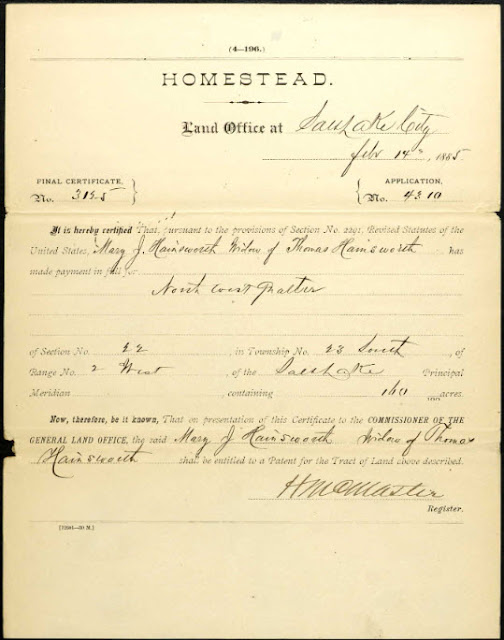 (4—196.)
HOMESTEAD.
Land Office at Salt Lake City
Feb 14th, 1885
FINAL CERTIFICATE, No. 3195 } { APPLICATION, No. 4310
It is hereby certified That, pursuant to the provisions of Section No. 2291, Revised Statutes of the
United States, Mary J. Hainsworth Widow of Thomas Hainsworth has
made payment in full for
North West Quarter
of Section No. 22, in Township No. 23 South, of
Range No. 2 West, of the Salt Lake Principal
Meridian, containing 160 acres.
Now, therefore, be it known, That on presentation of this Certificate to the COMMISSIONER OF THE
GENERAL LAND OFFICE, the said Mary J Hainsworth Widow of Thomas
Hainsworth shall be entitled to a Patent for the Tract of Land above described.
H McMaster
Register.